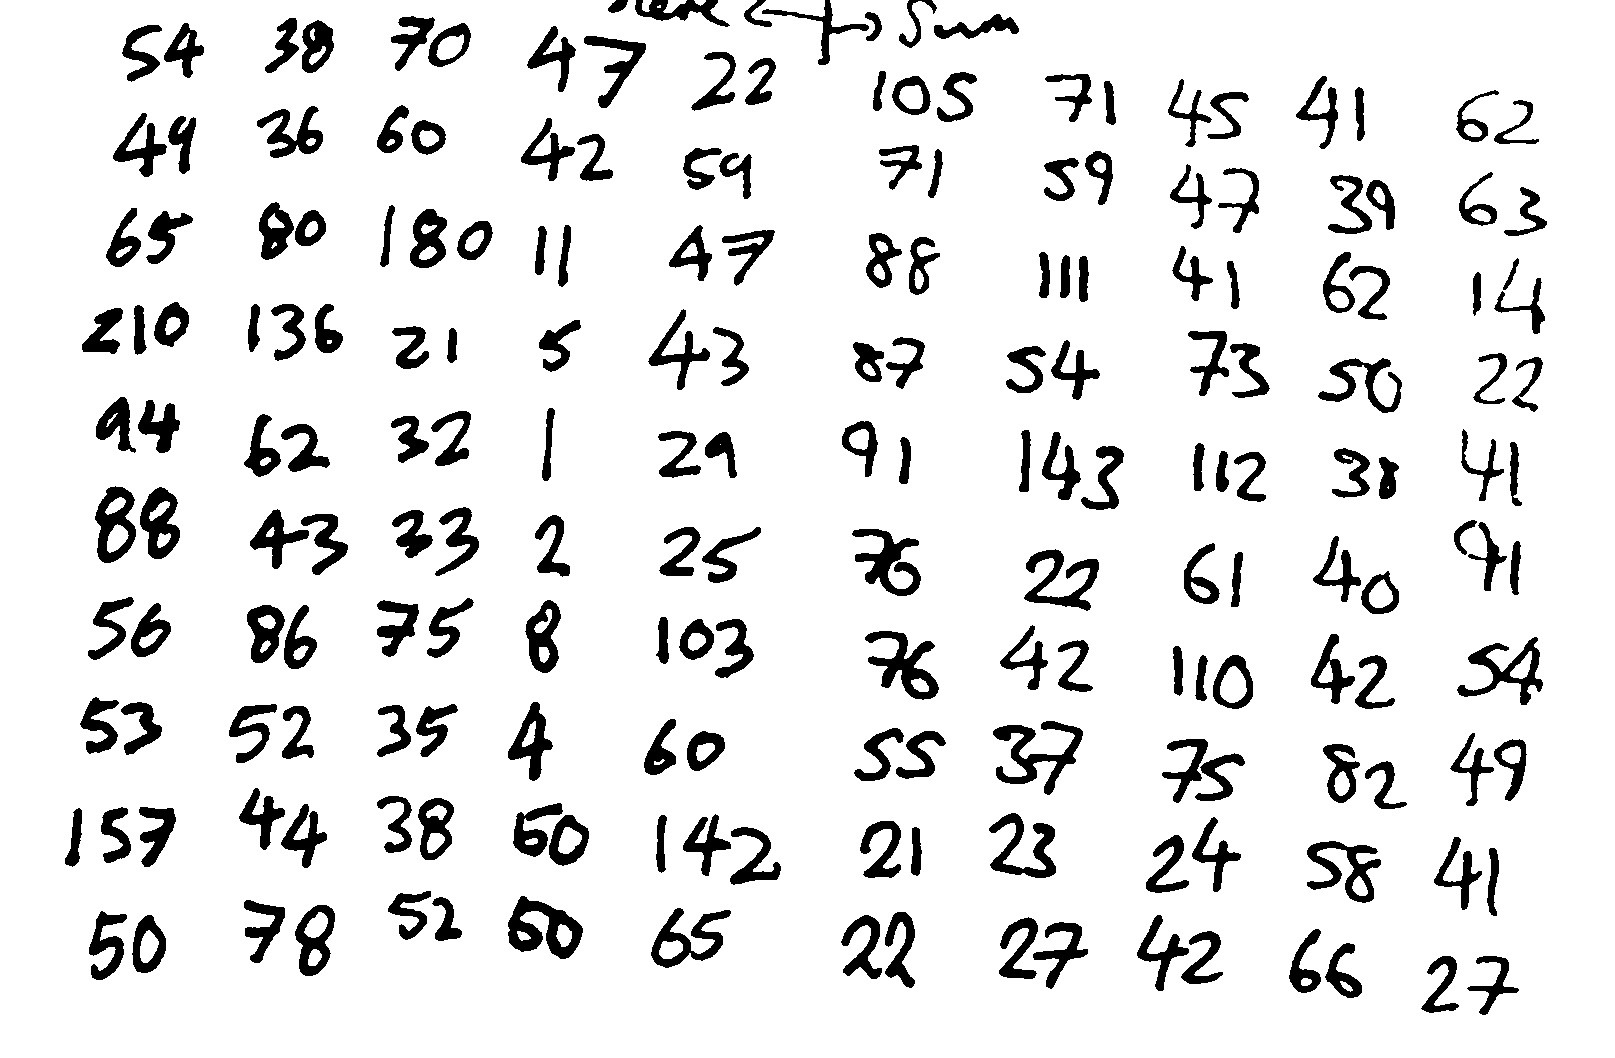 ← → Sum
54 38 70 47 22 105 71 45 41 62
49 36 60 42 59 71 59 47 39 63
65 80 180 11 47 88 111 41 62 14
210 136 21 5 43 87 54 73 50 22
94 62 32 1 29 91 143 112 38 41
88 43 33 2 25 76 22 61 40 91
56 86 75 8 103 76 42 110 42 54
53 52 35 4 60 55 37 75 82 49
157 44 38 60 142 21 23 24 58 41
50 78 52 50 65 22 27 42 66 27